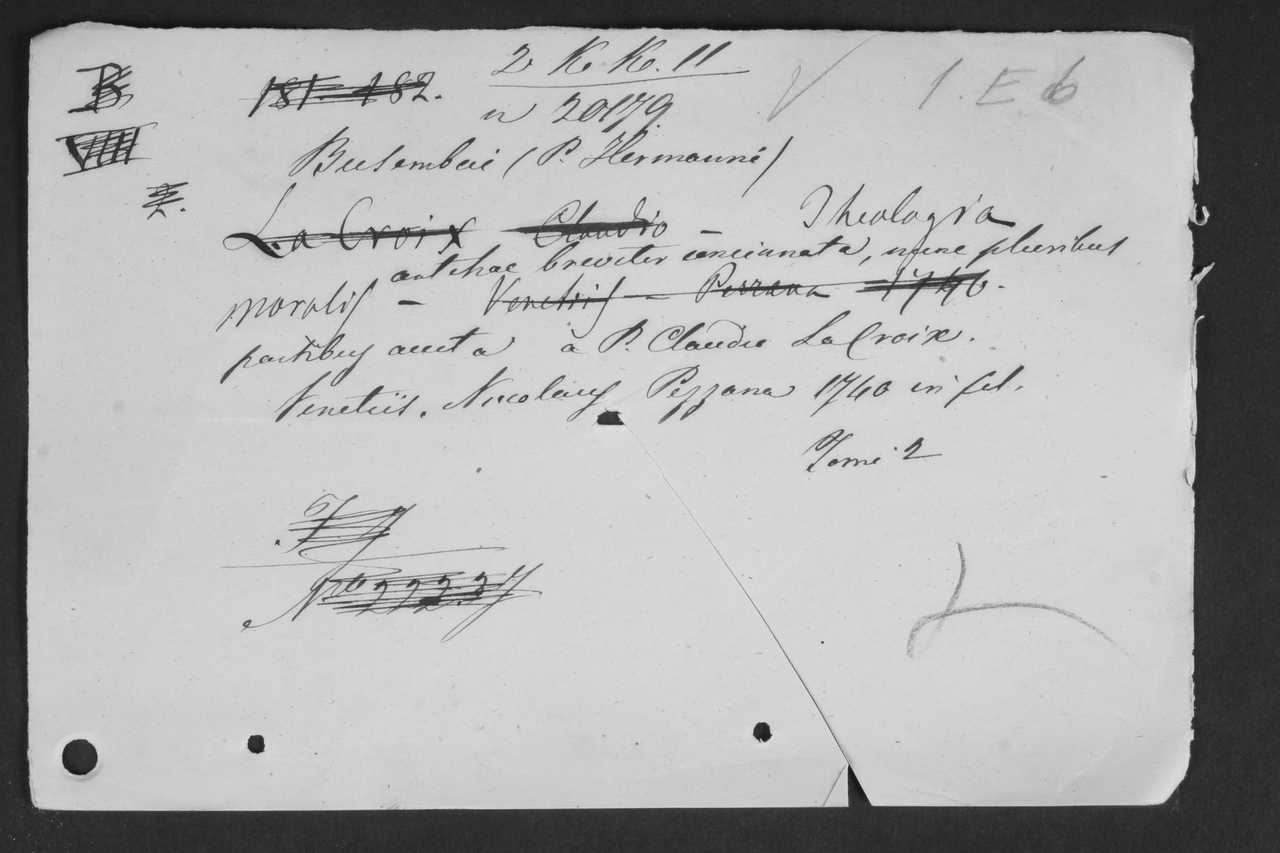 B
181. 182.
2 K K. 11
1. E 6
n 20179
VIIII
Busembai (P. Hermanni)
2.
La Croix Claudio – Theologia
antehac breviter concinnata, nunc pluribus
moralis – Venetiis – Pezzana 1740.
partibus aucta à P. Claudio La Croix.
Venetiis. Nicolaus Pezzana 1740 in fol.
Tomi 2